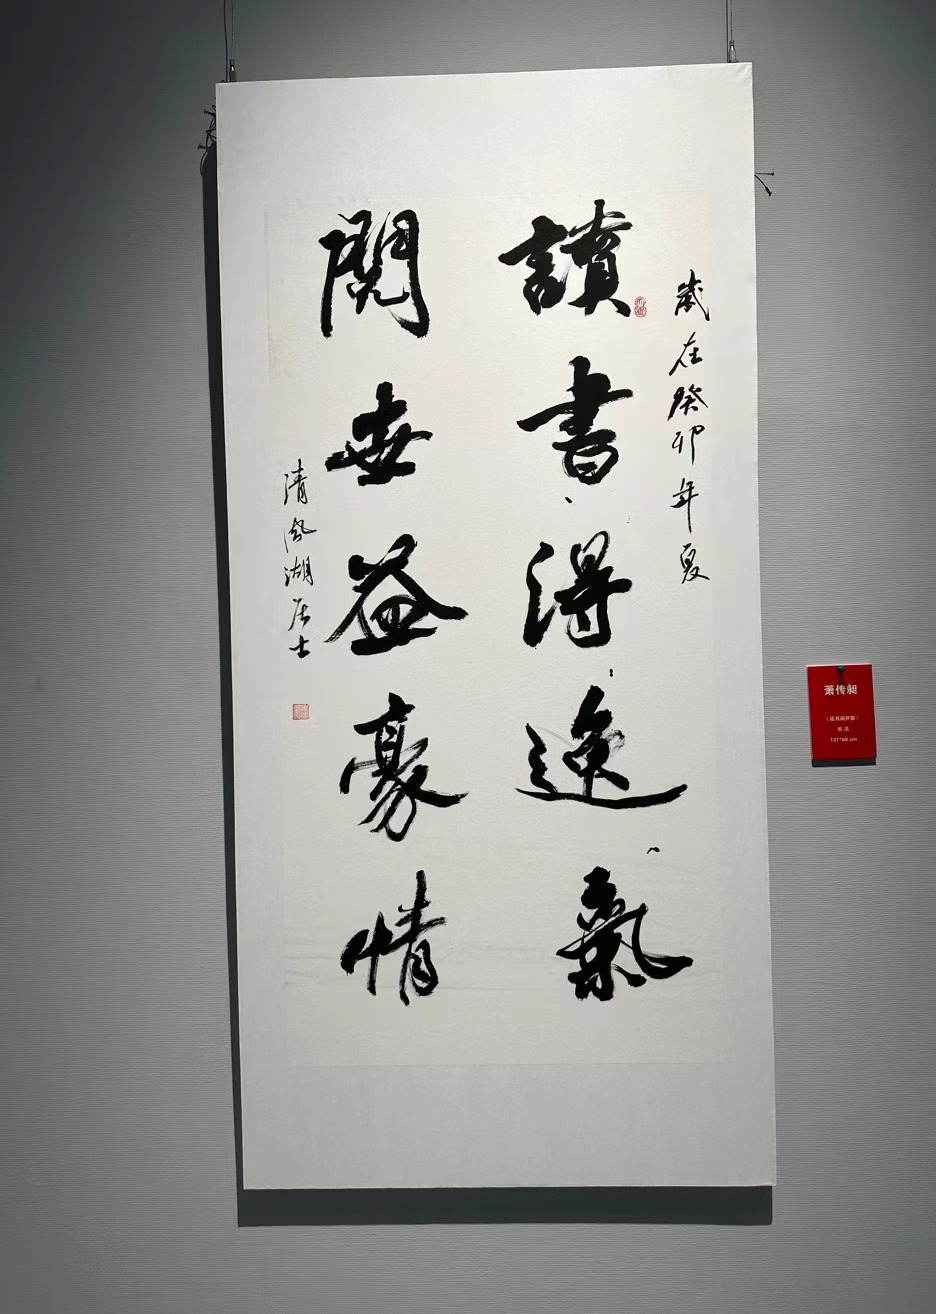 歲在癸卯年夏
讀書得逸氣
閱世益豪情
清風湖居士
萧传昶
《读书阅世联》
书法
137*68 cm